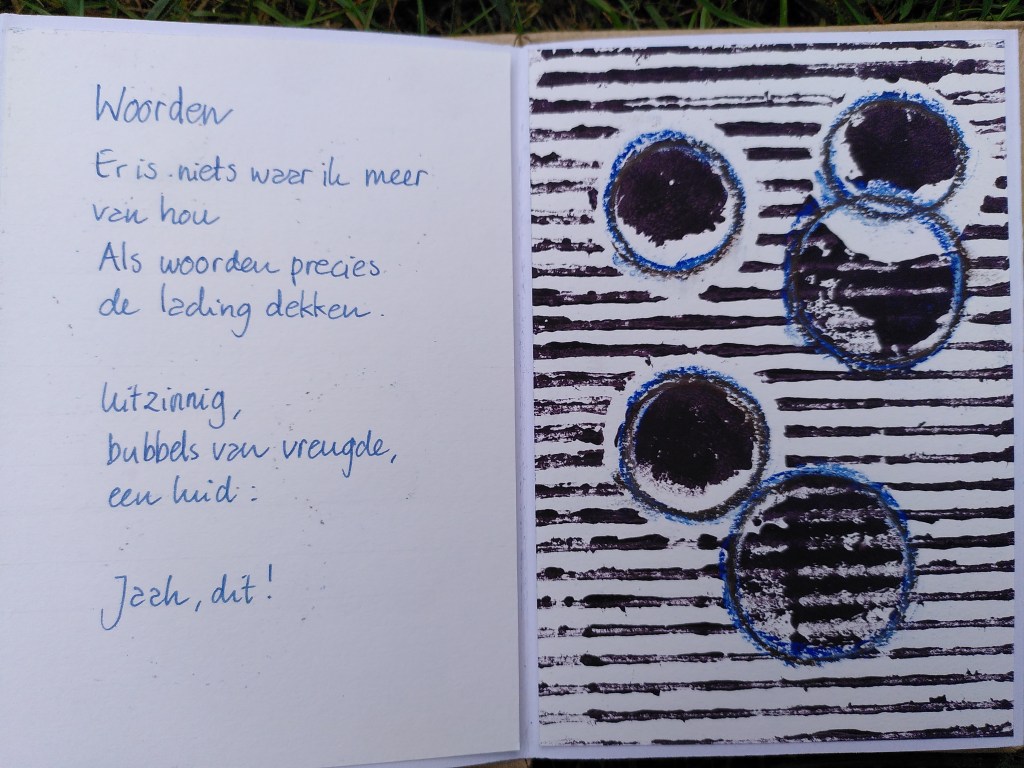 Woorden
Er is niets waar ik meer
van hou
Als woorden precies
de lading dekken.
Uitzinnig,
bubbels van vreugde,
een luid:
Jaah, dit!